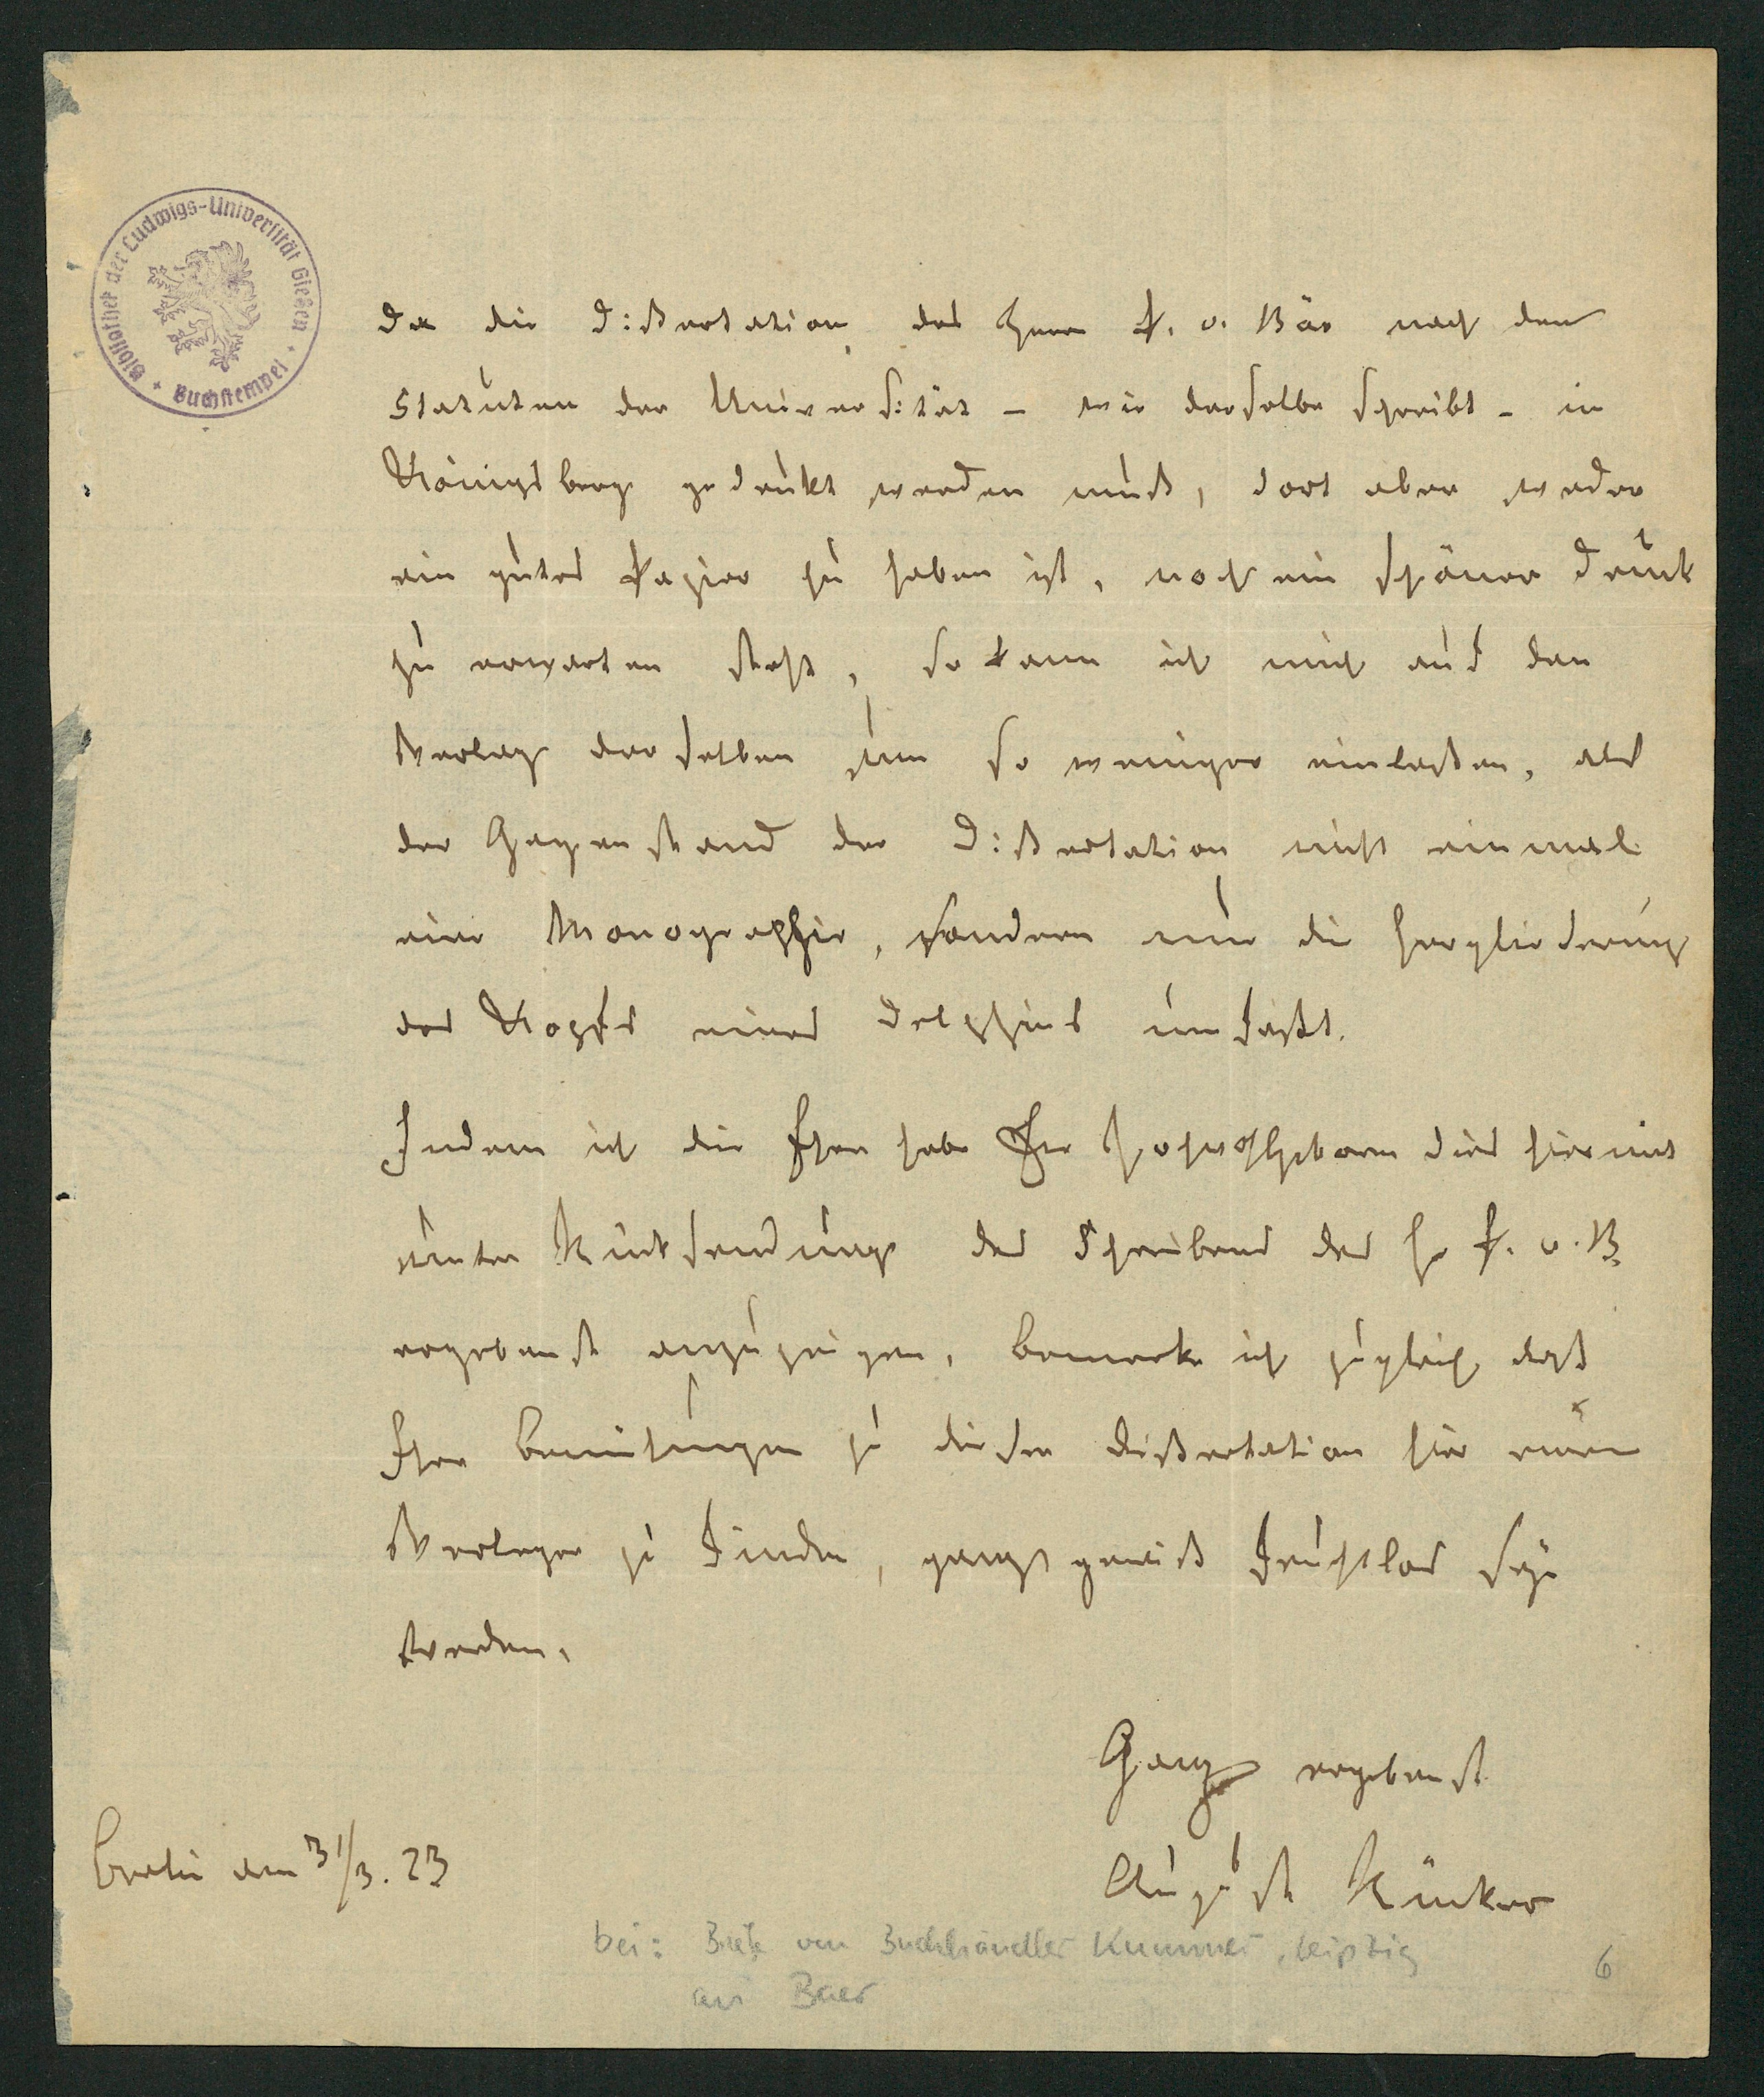 Bibliothek der Ludwigs-Universität Gießen
Buchstempel
Da die Dißertation des Herrn P. v. Bär nach den
Statuten der Universität - wie derselbe schreibt - in
Königsberg gedrukt werden muß, dort aber weder
ein gutes Papier zu haben ist, noch ein schöner Druck
zu erwarten steht, so kann ich mich auf den
Verlag derselben um so weniger einlaßen, als
der Gegenstand der Dißertation nicht einmal
eine Monographie, sondern nur die Zergliederung
des Kopfs eines Delphins umfaßt.
Indem ich die Ehre habe Ew Hochwohlgeboren dies hiermit
unter Rüksendung des Schreibens des H P. v. B.
ergebenst anzuzeigen, bemerke ich zugleich daß
Ihre Bemühungen zu dieser Dißertation hier einen
Verleger zu finden, ganz gewiß fruchtlos seyn
werden.
Ganz ergebenst
August Rücker
Berlin am 31/3. 23
bei: Briefe von Buchhändler Kummer, Leipzig
an Baer
6